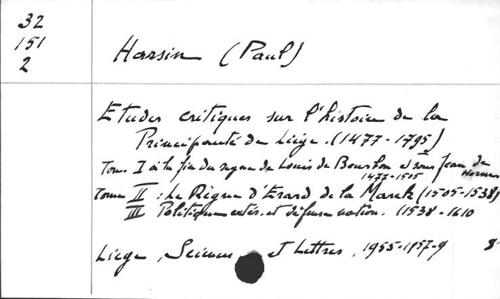 32
151
2
Harsin (Paul)
Etudes critiques sur l'histoire de la
Principauté de Liège. (1477-1795)
Tome I à la fin du règne de Louis de Bourbon et sous Jean de Hornes
1477-1505
Tome II : Le Règne d'Erard de la Marck (1505-1538)
III Politique extér. et défense nation. (1538-1610
Liège, Sciences et Lettres, 1955-1957-9 8